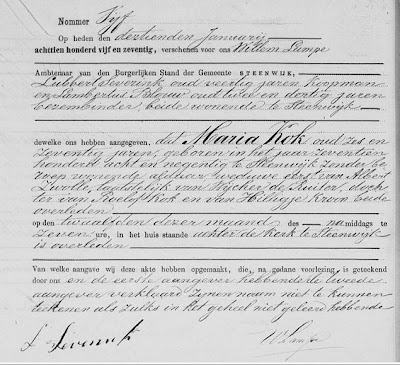 Nummer Vyf
Op heden den dertienden Januarij
achttien honderd vijf en zeventig, verschenen voor ons Willem Lampe
Ambtenaar van den Burgerlijken Stand der Gemeente STEENWIJK,
Lubbert Leverink oud veertig jaren Koopman
en Lambertus oud twee en dertig jaren
bezembinder, beide wonende te Steenwijk
dewelke ons hebben aangegeven, dat Maria Kok oud zes en
zeventig jaren, geboren in het jaar zeventien
honderd acht en negentig te Steenwijk zonder be
roep wonende aldaar, weduwe eerst van Albert
Zwolle, laatstelijk van Wycher de Ruiter, doch
ter van Roelof Kok en van Hilligje Kroon beide
overleden
op den twaalfden dezer maand des namiddags te
zeven ure, in het huis staande achter de kerk te Steenwijk
is overleden
Van welke aangave wij deze akte hebben opgemaakt, die, na gedane voorlezing, is geteekend
door ons en de eerste aangever hebbende de tweede
aangever verklaard zynen naam niet te kunnen
teekenen als zulks in het geheel niet geleerd hebbende
L Leverink
W Lampe